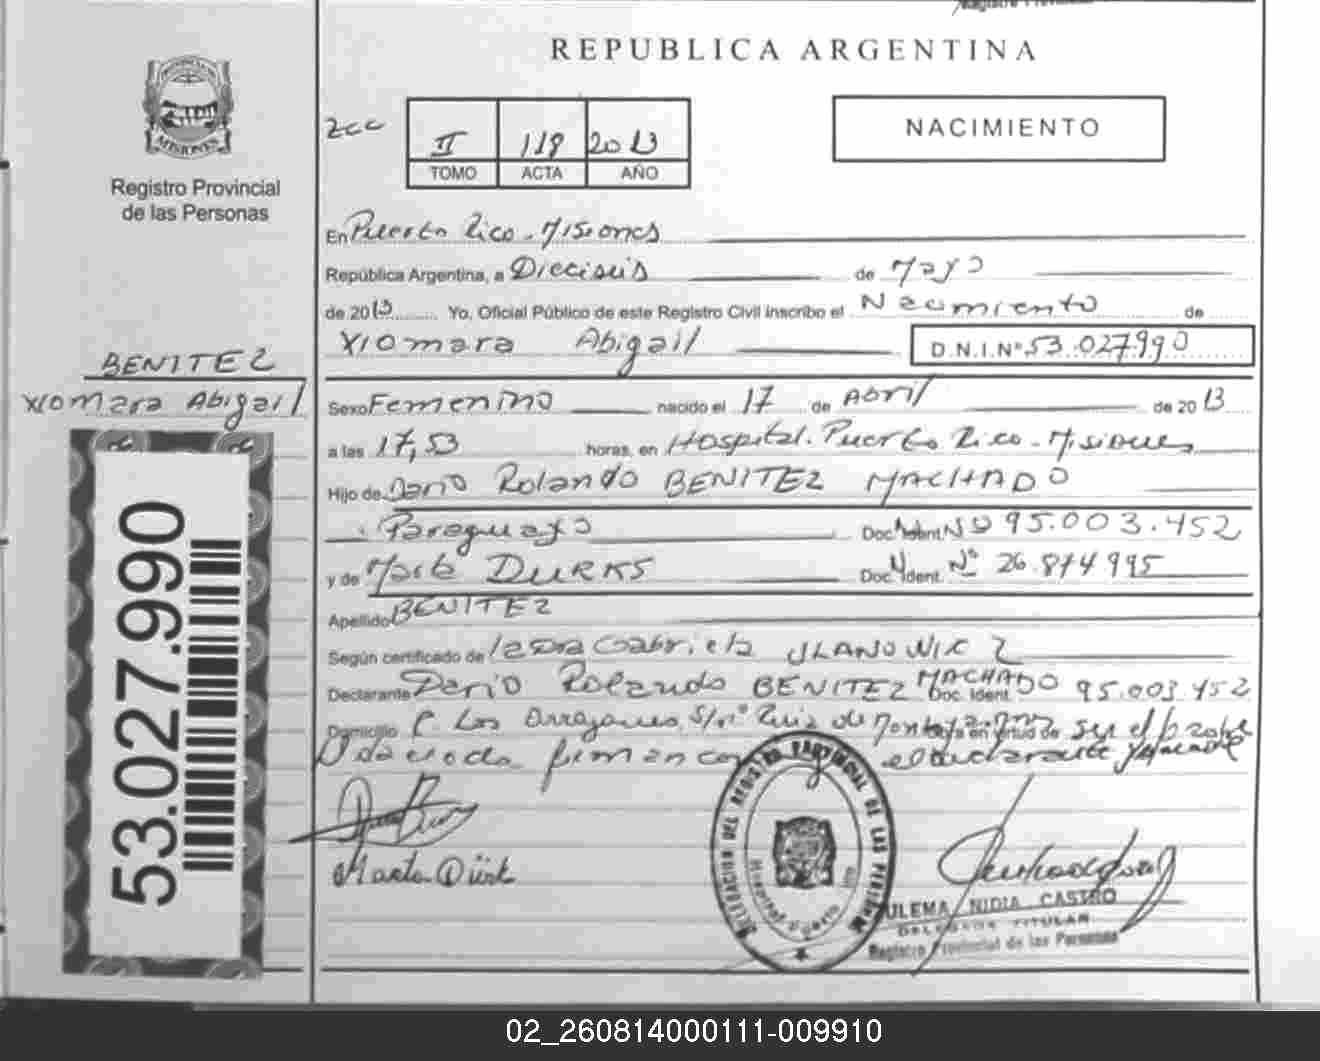 REPUBLICA ARGENTINA
PROVINCIA DE
MISIONES
Registro Provincial
de las Personas
NACIMIENTO
II 118 2013
TOMO ACTA AÑO
En Puerto Rico - Misiones
República Argentina, a Dieciseis de Mayo
de 2013 Yo, Oficial Público de este Registro Civil inscribo el Nacimiento de
Xiomara Abigail D.N.I.Nº 53.027.990
BENITEZ
Xiomara Abigail
Sexo Femenino nacido el 17 de Abril de 2013
a las 17,53 horas, en Hospital. Puerto Rico - Misiones
Hijo de Dario Rolando BENITEZ MACHADO
Paraguayo Doc. Ident. Nº 95.003.452
y de Doc. Ident. Nº 26.874.995
Apellido BENITEZ
Según certificado de Gabriela
Declarante Dario Rolando BENITEZ MACHADO Doc. Ident. 95.003.452
Domicilio C. Los Arrayanes S/nº Ruiz de Montoya en virtud de ser el
firman el declarante
53.027.990
DELEGACION DEL REGISTRO PROVINCIAL DE LAS PERSONAS
ULEMA NIDIA CASTRO
DELEGADA TITULAR
Registro Provincial de las Personas
02_260814000111-009910